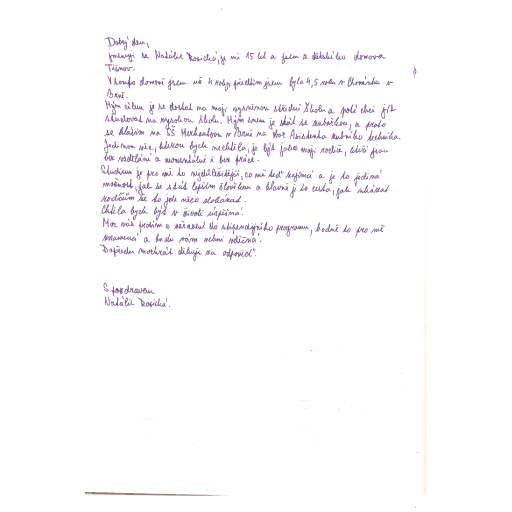 Dobrý den,
jmenuji se Natálie, je mi 15 let a jsem z dětského domova
Tišnov.
V tomto domově jsem už 4 roky, předtím jsem byla 4,5 roku v Chovánku v
Brně.
Mým cílem je se dostat na moji vysněnou střední školu a poté chci jít
studovat na vysokou školu. Mým snem je stát se zubařkou, a proto
se hlásím na SŠ v Brně na obor Asistentka zubního technika.
Jedinou věc, kterou bych nechtěla, je být jako moji rodiče, kteří jsou
bez vzdělání a momentálně i bez práce.
Studium je pro mě to nejdůležitější, co mě teď zajímá a je to jediná
možnost, jak se stát lepším člověkem a hlavně je to cesta, jak ukázat
rodičům že to jde něco dokázat.
Chtěla bych být v životě úspěšná.
Moc vás prosím o zařazení do stipendijního programu, hodně to pro mě
znamená a budu vám velmi vděčná.
Dopředu mockrát děkuji za odpověď.
S pozdravem
Natálie